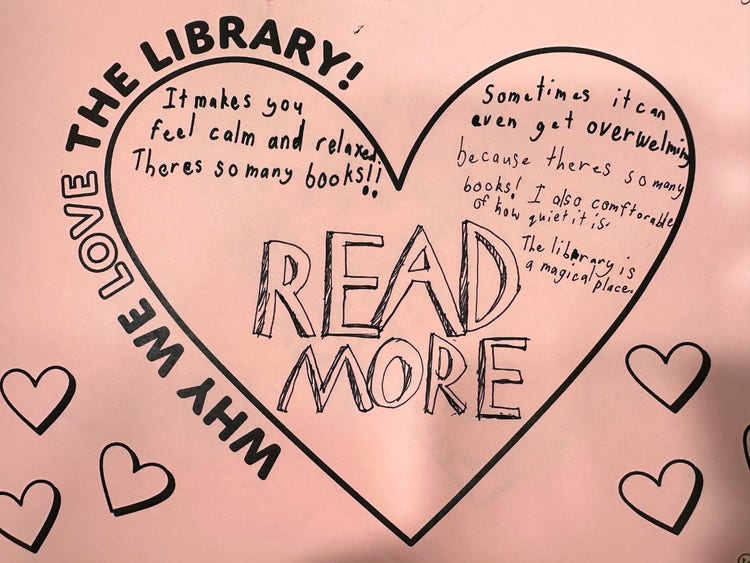 WHY WE LOVE THE LIBRARY!
It makes you
feel calm and relaxed.
Theres so many books!!
Sometimes it can
even get overwelming
because theres so many
books! I also comftorable
of how quiet it is.
The library is
a magical place.
READ
MORE